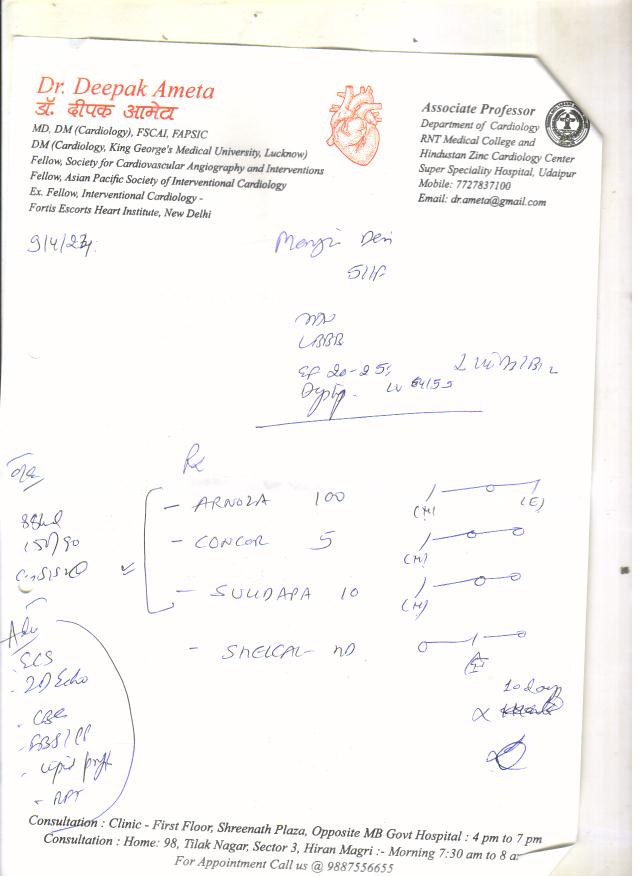 Dr. Deepak Ameta
डॉ. दीपक आमेटा
MD, DM (Cardiology), FSCAI, FAPSIC
DM (Cardiology, King George's Medical University, Lucknow)
Fellow, Society for Cardiovascular Angiography and Interventions
Fellow, Asian Pacific Society of Interventional Cardiology
Ex. Fellow, Interventional Cardiology -
Fortis Escorts Heart Institute, New Delhi
Associate Professor
Department of Cardiology
RNT Medical College and
Hindustan Zinc Cardiology Center
Super Speciality Hospital, Udaipur
Mobile: 7727837100
Email: dr.ameta@gmail.com
9/4/
Devi
LBBB
EF 20-25%
LV 64/55
Rx
- ARNOZA 100
(M) (E)
- CONCOR 5
(M)
- SULIDAPA 10
(M)
- SHELCAL - HD
10 day
150/90
Adv
- ECG
- 2D Echo
- CBC
- lipid prof
- RFT
Consultation : Clinic - First Floor, Shreenath Plaza, Opposite MB Govt Hospital : 4 pm to 7 pm
Consultation : Home: 98, Tilak Nagar, Sector 3, Hiran Magri :- Morning 7:30 am to 8 a
For Appointment Call us @ 9887556655